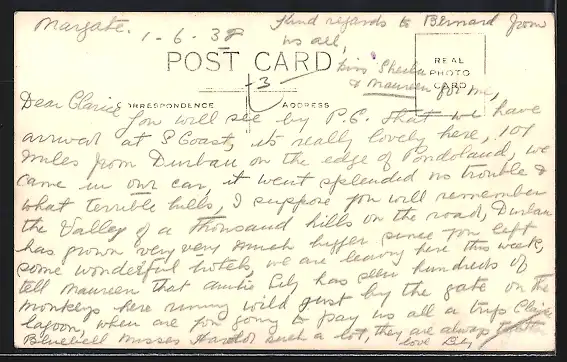 Margate. 1-6-38
Kind regards to Bernard from
us all,
POST CARD
REAL
PHOTO
CARD
Kiss Sheila
& Maureen for me,
3
CORRESPONDENCE ADDRESS
Dear Clarice
You will see by P.C. that we have
arrived at S Coast, its really lovely here, 101
miles from Durban on the edge of Pondoland, we
came in our car, it went splendid no trouble &
what terrible hills, I suppose you will remember
the Valley of a Thousand hills on the road, Durban
has grown very very much bigger since you left
some wonderful hotels, we are leaving here this week,
tell Maureen that auntie Lily has seen hundreds of
monkeys here running wild just by the gate on the
lagoon, when are you going to pay us all a trip Clarice
Bluebell misses Harold such a lot, they are always
love Lily